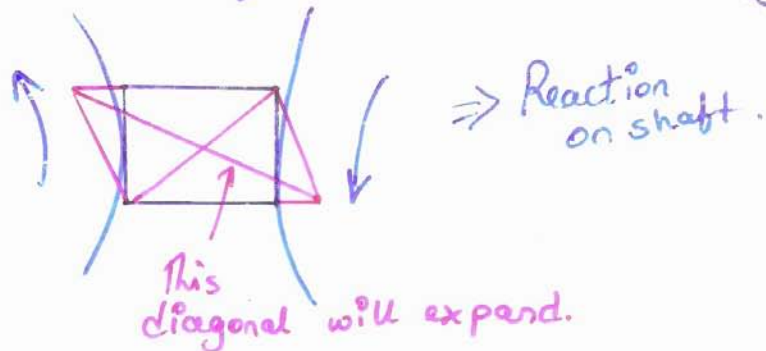 ⇒ Reaction
on shaft.
This
diagonal will expand.